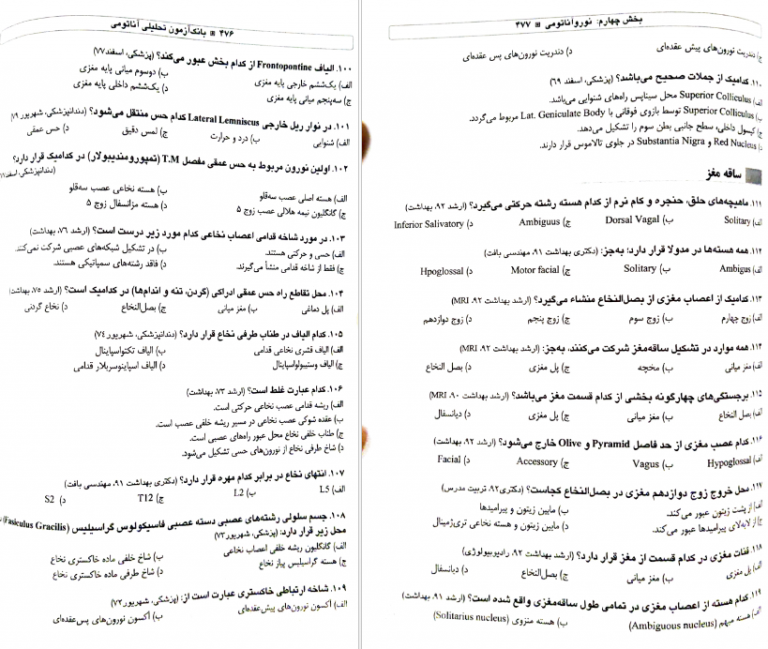 ۴۷۶ ⊞ بانک آزمون تحلیلی آناتومی
۱۰۰. الیاف Frontopontine از کدام بخش عبور می‌کند؟ (پزشکی، اسفند ۷۷)
الف) یک‌ششم خارجی پایه مغزی
ب) دوسوم میانی پایه مغزی
ج) سه‌پنجم میانی پایه مغزی
د) یک‌ششم داخلی پایه مغزی
۱۰۱. در نوار ریل خارجی Lateral Lemniscus کدام حس منتقل می‌شود؟ (دندانپزشکی، شهریور
الف) شنوایی ب) درد و حرارت ج) لمس دقیق د) حس عمقی
۱۰۲. اولین نورون مربوط به حس عمقی مفصل T.M (تمپورومندیبولار) در کدامیک قرار دارد؟
(دندانپزشکی، اسفند
الف) هسته اصلی عصب سه‌قلو
ب) هسته نخاعی عصب سه‌قلو
ج) گانگلیون نیمه هلالی عصب زوج ۵
د) هسته مزانسفال زوج ۵
۱۰۳. در مورد شاخه قدامی اعصاب نخاعی کدام مورد زیر درست است؟ (ارشد ۷۶، بهداشت)
الف) حسی و حرکتی هستند.
ب) در تشکیل شبکه‌های عصبی شرکت نمی‌کنند.
ج) فقط از شاخه قدامی منشأ می‌گیرند.
د) فاقد رشته‌های سمپاتیکی هستند.
۱۰۴. محل تقاطع راه حس عمقی ادراکی (گردن، تنه و اندام‌ها) در کدامیک است؟ (ارشد ۷۵، بهداشت)
الف) پل دماغی ب) مغز میانی ج) بصل‌النخاع د) نخاع گردنی
۱۰۵. کدام الیاف در طناب طرفی نخاع قرار دارد؟ (دندانپزشکی، شهریور ۷۴)
الف) الیاف قشری نخاعی قدامی
ب) الیاف تکتواسپاینال
ج) الیاف وستیبولواسپاینال
د) الیاف اسپاینوسربلار قدامی
۱۰۶. کدام عبارت غلط است؟ (ارشد ۷۳، بهداشت)
الف) ریشه قدامی عصب نخاعی حرکتی است.
ب) عقده شوکی عصب نخاعی در مسیر ریشه خلفی عصب است.
ج) طناب خلفی نخاع محل عبور راه‌های عصبی است.
د) شاخ طرفی نخاع از نورون‌های حسی تشکیل می‌شود.
۱۰۷. انتهای نخاع در برابر کدام مهره قرار دارد؟ (دکتری بهداشت ۹۱، مهندسی بافت)
الف) L5 ب) L2 ج) T12 د) S2
۱۰۸. جسم سلولی رشته‌های عصبی دسته عصبی فاسیکولوس گراسیلیس (Fasiculus Gracilis)
محل زیر قرار دارد: (پزشکی، شهریور ۷۳)
الف) گانگلیون ریشه خلفی اعصاب نخاعی
ب) شاخ خلفی ماده خاکستری نخاع
ج) هسته گراسیلیس پیاز نخاع
د) شاخ طرفی ماده خاکستری نخاع
۱۰۹. شاخه ارتباطی خاکستری عبارت است از: (پزشکی، شهریور ۷۳)
الف) آکسون نورون‌های پیش‌عقده‌ای
ب) آکسون نورون‌های پس‌عقده‌ای
بخش چهارم: نوروآناتومی ⊞ ۴۷۷
ج) دندریت نورون‌های پیش عقده‌ای
د) دندریت نورون‌های پس عقده‌ای
۱۱۰. کدامیک از جملات صحیح می‌باشد؟ (پزشکی، اسفند ۶۹)
الف) Superior Colliculus محل سیناپس راه‌های شنوایی می‌باشد.
ب) Superior Colliculus توسط بازوی فوقانی با Lat. Geniculate Body مربوط می‌گردد.
ج) کپسول داخلی، سطح جانبی بطن سوم را تشکیل می‌دهد.
د) Red Nucleus و Substantia Nigra در جلوی تالاموس قرار دارند.
ساقه مغز
۱۱۱. ماهیچه‌های حلق، حنجره و کام نرم از کدام هسته رشته حرکتی می‌گیرد؟ (ارشد ۹۲، بهداشت)
الف) Solitary ب) Dorsal Vagal ج) Ambiguus د) Inferior Salivatory
۱۱۲. همه هسته‌ها در مدولا قرار دارد؛ به‌جز: (دکتری بهداشت ۹۱، مهندسی بافت)
الف) Ambigus ب) Solitary ج) Motor facial د) Hpoglossal
۱۱۳. کدامیک از اعصاب مغزی از بصل‌النخاع منشاء می‌گیرد؟ (ارشد بهداشت ۹۲، MRI)
الف) زوج چهارم ب) زوج سوم ج) زوج پنجم د) زوج دوازدهم
۱۱۴. همه موارد در تشکیل ساقه‌مغز شرکت می‌کنند، به‌جز: (ارشد بهداشت ۹۲، MRI)
الف) مغز میانی ب) مخچه ج) پل مغزی د) بصل النخاع
۱۱۵. برجستگی‌های چهارگونه بخشی از کدام قسمت مغز می‌باشد؟ (ارشد بهداشت ۹۰، MRI)
الف) بصل النخاع ب) مغز میانی ج) پل مغزی د) دیانسفال
۱۱۶. کدام عصب مغزی از حد فاصل Pyramid و Olive خارج می‌شود؟ (ارشد ۹۲، بهداشت)
الف) Hypoglossal ب) Vagus ج) Accessory د) Facial
۱۱۷. محل خروج زوج دوازدهم مغزی در بصل‌النخاع کجاست؟ (دکتری ۹۲، تربیت مدرس)
الف) از پشت زیتون عبور می‌کند.
ب) مابین زیتون و پیرامیدها
ج) از لابه‌لای پیرامیدها عبور می‌کند.
د) مابین زیتون و هسته نخاعی تری‌ژمینال
۱۱۸. قنات مغزی در کدام قسمت از مغز قرار دارد؟ (ارشد بهداشت ۹۲، رادیوبیولوژی)
الف) پل مغزی ب) مغز میانی ج) بصل‌النخاع د) دیانسفال
۱۱۹. کدام هسته از اعصاب مغزی در تمامی طول ساقه‌مغزی واقع شده است؟ (ارشد ۹۱، بهداشت)
الف) هسته مبهم (Ambiguous nucleus)
ب) هسته منزوی (Solitarius nucleus)